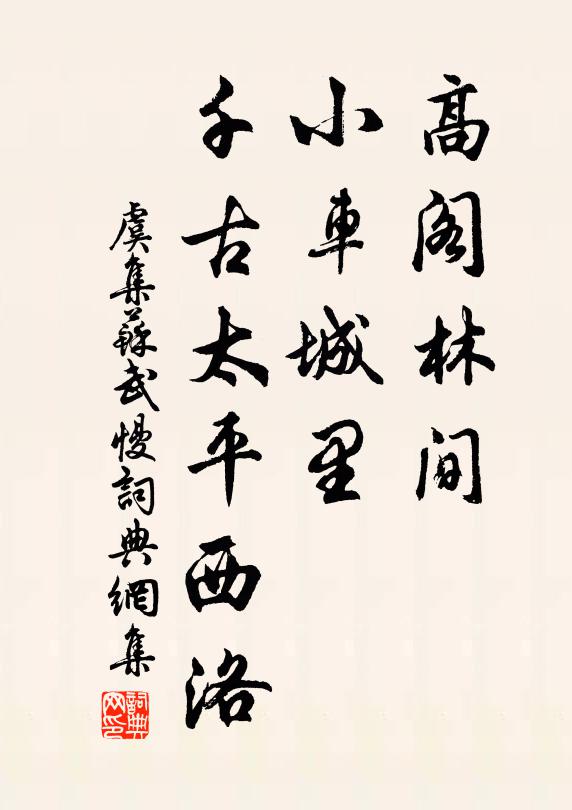 高阁林间
小車城里
千古太平西洛
虞集蘇武慢詞典網集
詞典网印